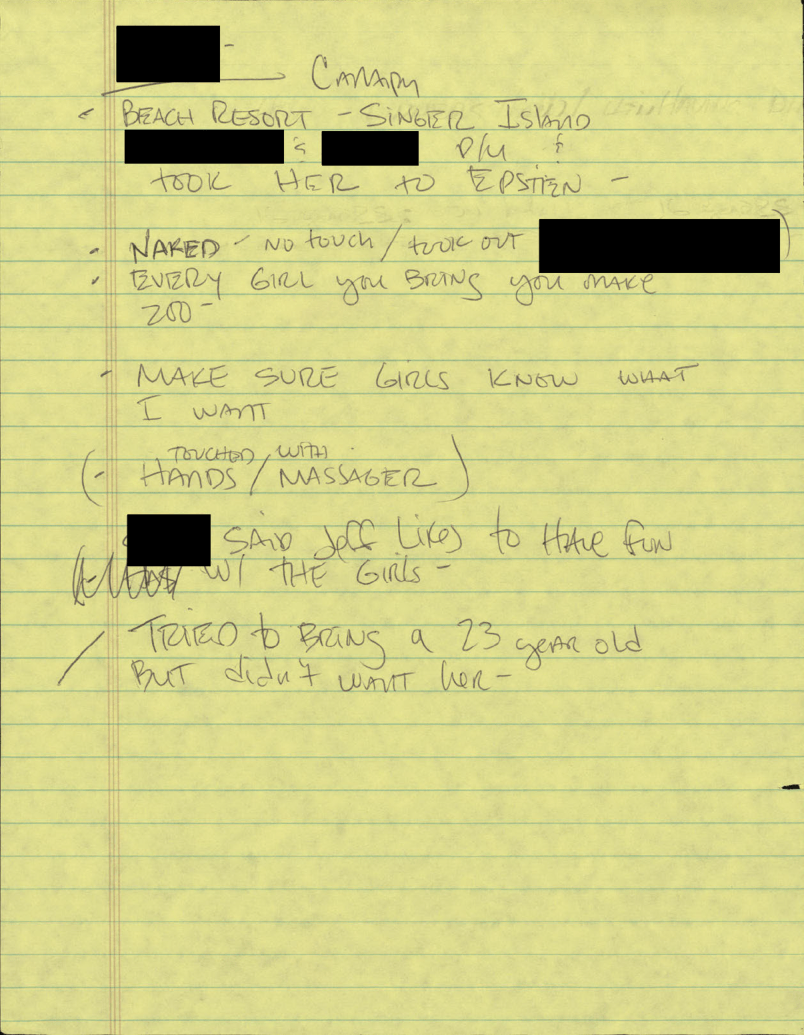 - Canapy
- BEACH RESORT - SINGER ISLAND
& P/U &
TOOK HER TO EPSTIEN -
- NAKED - NO TOUCH / TOOK OUT )
- EVERY GIRL YOU BRING YOU MAKE
200 -
- MAKE SURE GIRLS KNOW WHAT
I WANT
TOUCHED WITH
(- HANDS / MASSAGER )
SAID Jeff Likes to HAVE fun
W/ THE GIRLS -
/ TRIED to BRING a 23 year old
BUT didn't WANT her -